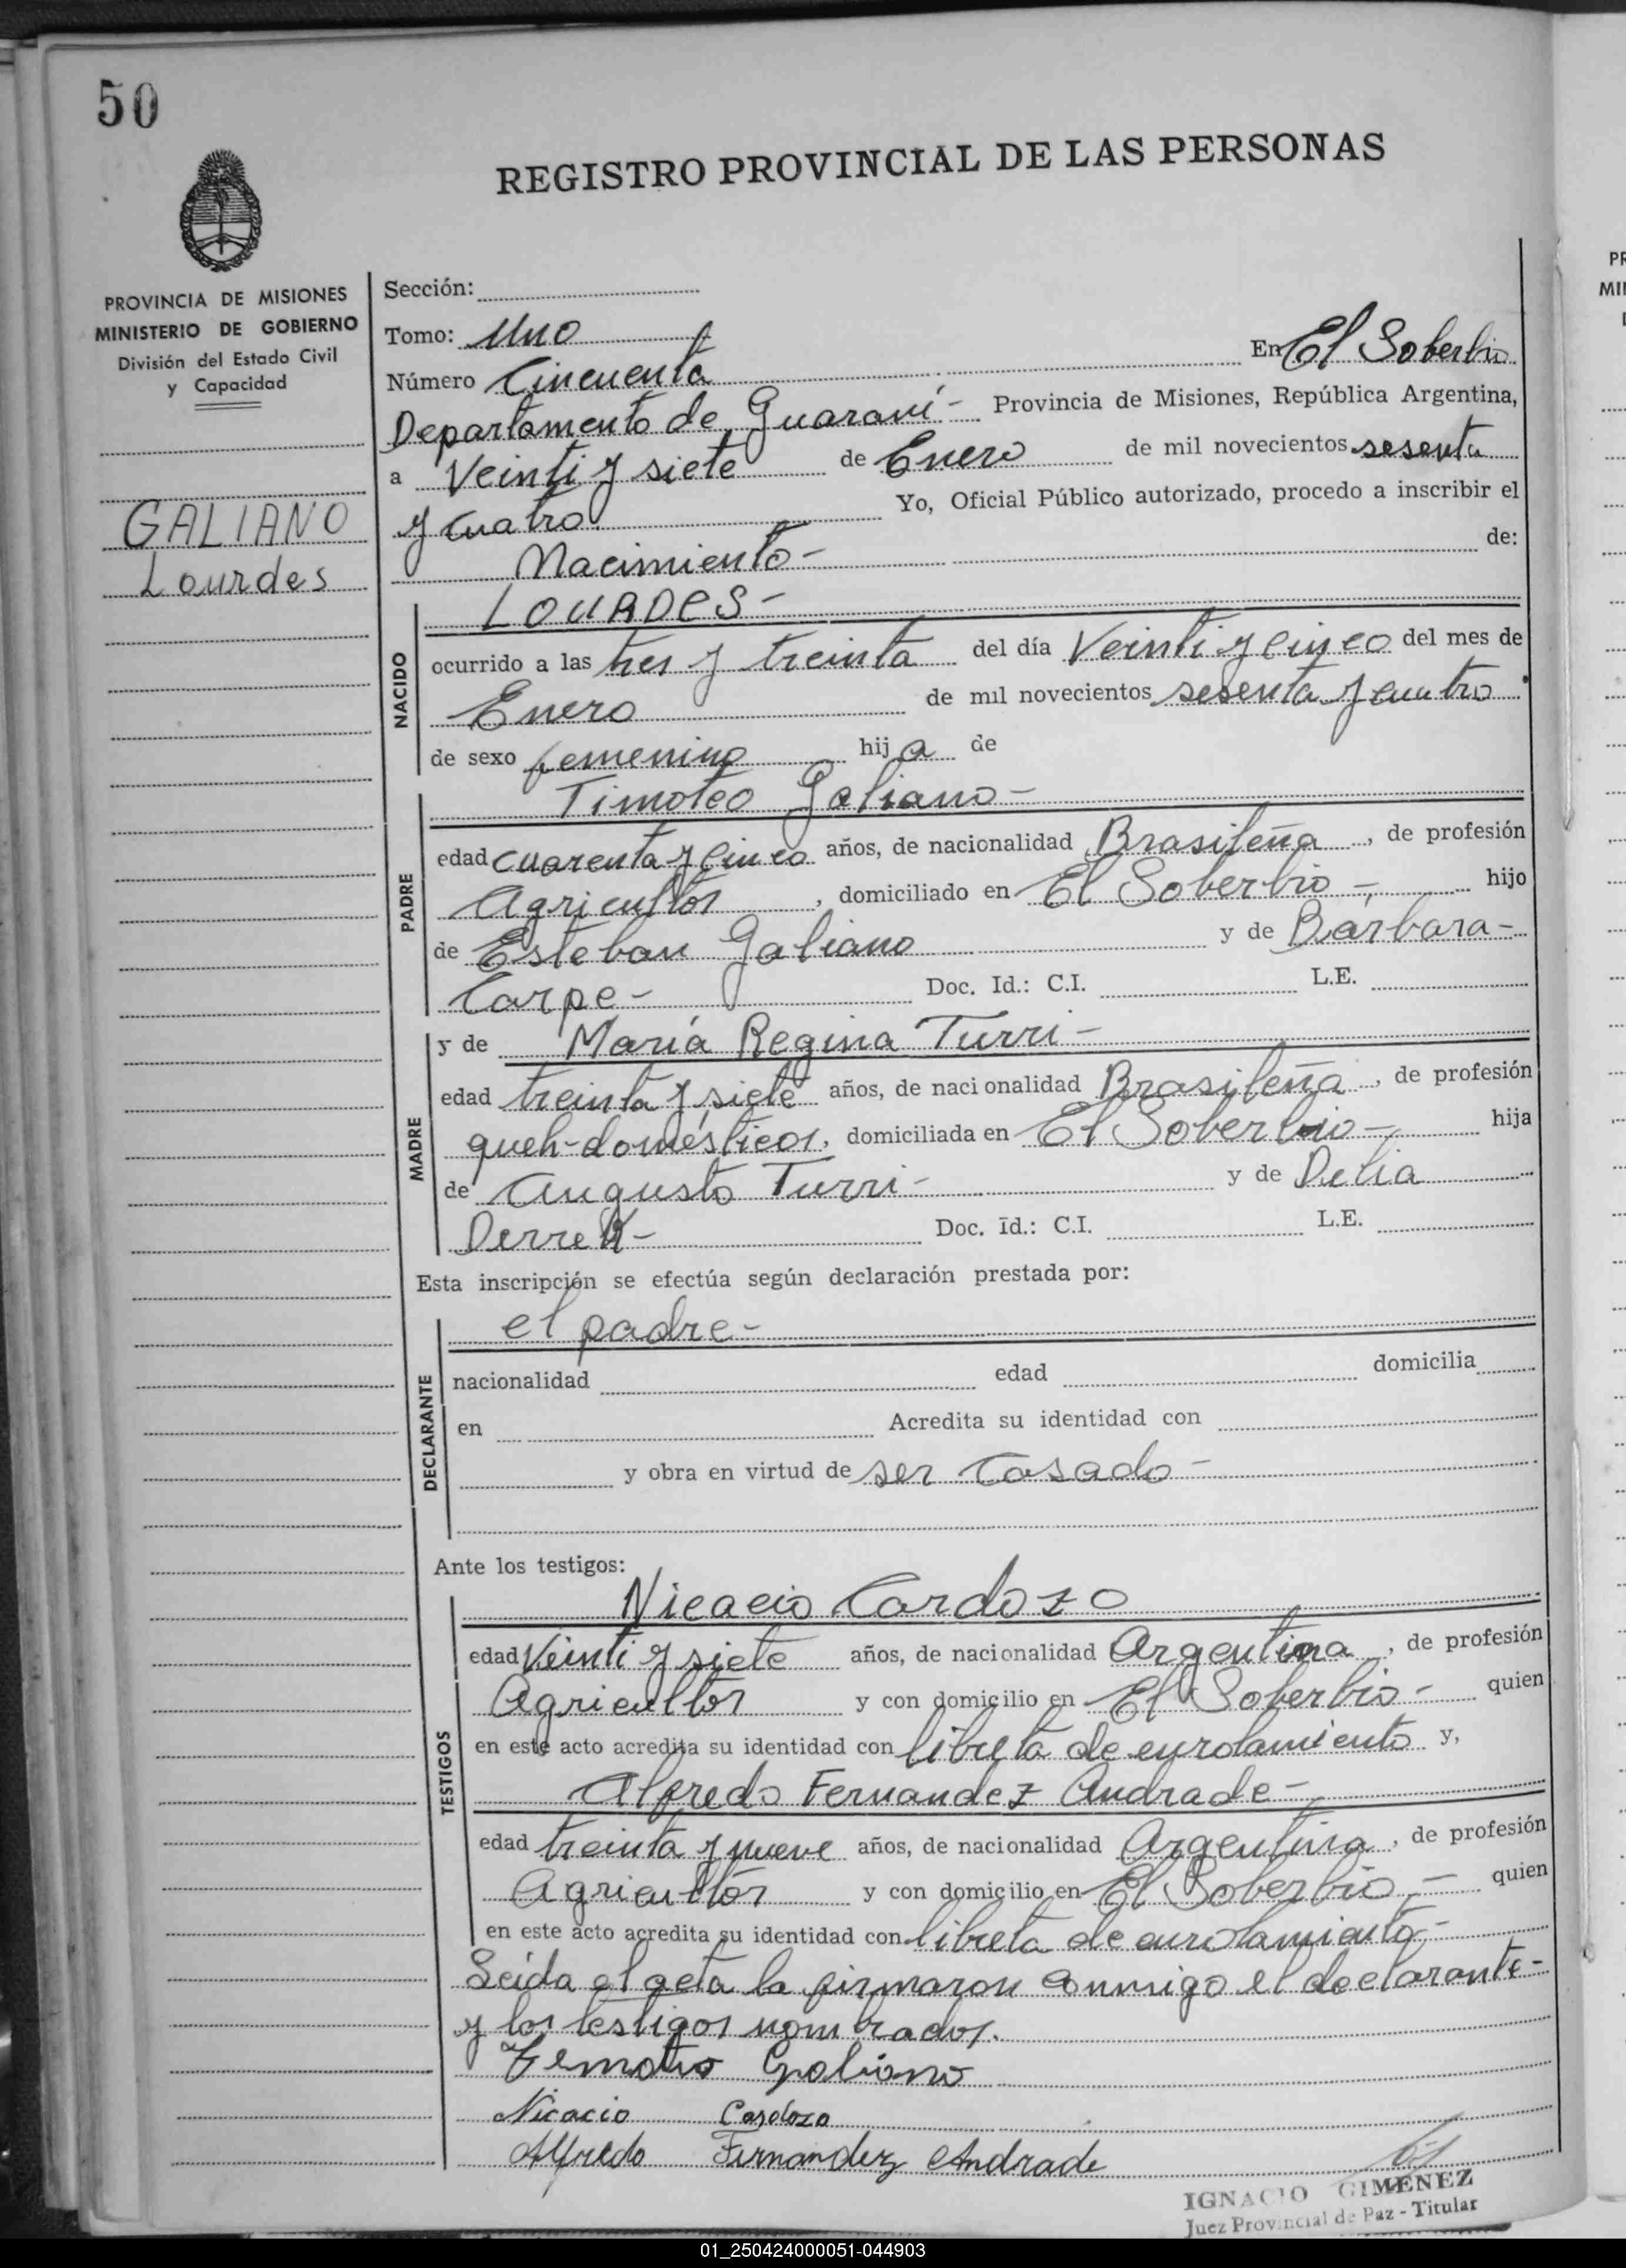 50
REGISTRO PROVINCIAL DE LAS PERSONAS
PROVINCIA DE MISIONES
MINISTERIO DE GOBIERNO
División del Estado Civil
y Capacidad
GALIANO
Lourdes
Sección:
Tomo: Uno
Número Cincuenta En El Soberbio
Departamento de Guaraní - Provincia de Misiones, República Argentina,
a Veinti y siete de Enero de mil novecientos sesenta
y cuatro. Yo, Oficial Público autorizado, procedo a inscribir el
Nacimiento - de:
NACIDO
LOURDES -
ocurrido a las tres y treinta del día Veinti y cinco del mes de
Enero de mil novecientos sesenta y cuatro
de sexo femenino hija de
PADRE
Timoteo Galiano -
edad cuarenta y cinco años, de nacionalidad Brasileña, de profesión
Agricultor, domiciliado en El Soberbio - hijo
de Esteban Galiano y de Bárbara -
Carpe - Doc. Id.: C.I. L.E.
MADRE
y de María Regina Turri -
edad treinta y siete años, de nacionalidad Brasileña, de profesión
queh-domésticos, domiciliada en El Soberbio - hija
de Augusto Turri - y de Delia
Doc. Id.: C.I. L.E.
Esta inscripción se efectúa según declaración prestada por:
DECLARANTE
el padre -
nacionalidad edad domicilia
en Acredita su identidad con
y obra en virtud de ser casado -
Ante los testigos:
TESTIGOS
Nicacio Cardozo
edad Veinti y siete años, de nacionalidad Argentina, de profesión
Agricultor y con domicilio en El Soberbio - quien
en este acto acredita su identidad con libreta de enrolamiento y,
Alfredo Fernandez Andrade -
edad treinta y nueve años, de nacionalidad Argentina, de profesión
Agricultor y con domicilio en El Soberbio, - quien
en este acto acredita su identidad con libreta de enrolamiento -
Leída el acta la firmaron conmigo el declarante -
y los testigos nombrados.
Galiano
Nicacio Cardozo
Alfredo Fernandez Andrade
IGNACIO GIMENEZ
Juez Provincial de Paz - Titular
PR
MI
01_250424000051-044903